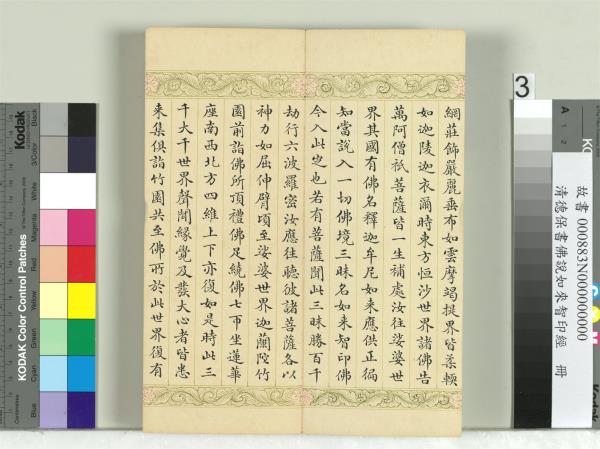 網莊飾嚴麗垂布如雲摩竭提界皆柔輭
如迦陵迦衣爾時東方恒沙世界諸佛告
萬阿僧祇菩薩皆一生補處汝往娑婆世
界其國有佛名釋迦牟尼如來應供正徧
知當說入一切佛境三昧名如來智印佛
今入此定也若有菩薩聞此三昧勝百千
劫行六波羅密汝應往聽彼諸菩薩各以
神力如屈伸臂頃至娑婆世界迦蘭陀竹
園前詣佛所頂禮佛足繞佛七帀坐蓮華
座南西北方四維上下亦復如是時此三
千大千世界聲聞緣覺及發大心者皆悉
來集俱詣竹園共至佛所於此世界復有
3
故書 000883N000000000
清德保書佛說如來智印經 冊
Kodak
KODAK Color Control Patches
Blue
Cyan
Green
Yellow
Red
Magenta
White
3/Color
Black
A
1
2